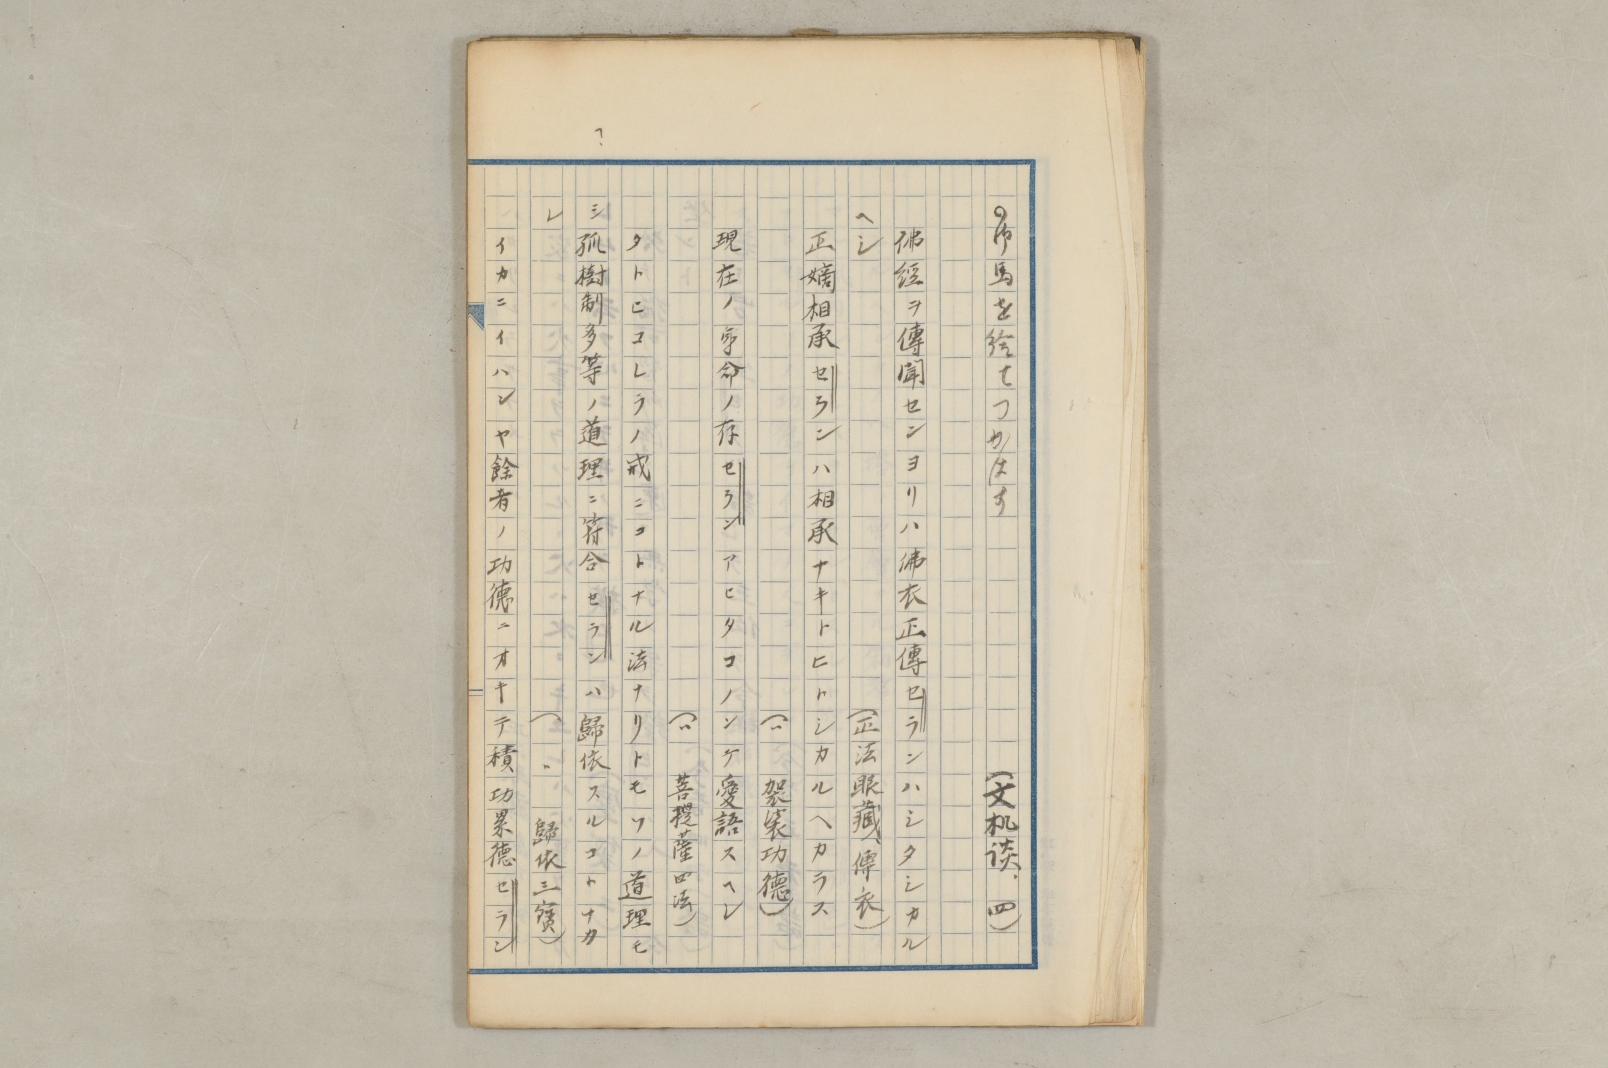 の御馬を絵てつかはす
(文机谈、四)
佛經ヲ傳聞センヨリハ佛衣正傳セランハシタシカル
ヘシ
(正法眼藏、傳衣)
正嫡相承セランハ相承ナキトヒトシカルヘカラス
(〃 袈裟功德)
現在ノ身命ノ存セランアヒタコノンテ愛語スヘシ
(〃 菩提薩四法)
タトヒコレラノ戒ニコトナル法ナリトモソノ道理モ
シ孤樹制多等ノ道理ニ符合セランハ歸依スルコトナカ
レ
(〃 歸依三寳)
イカニイハンヤ餘者ノ功德ニオキテ積功累德セラン
?